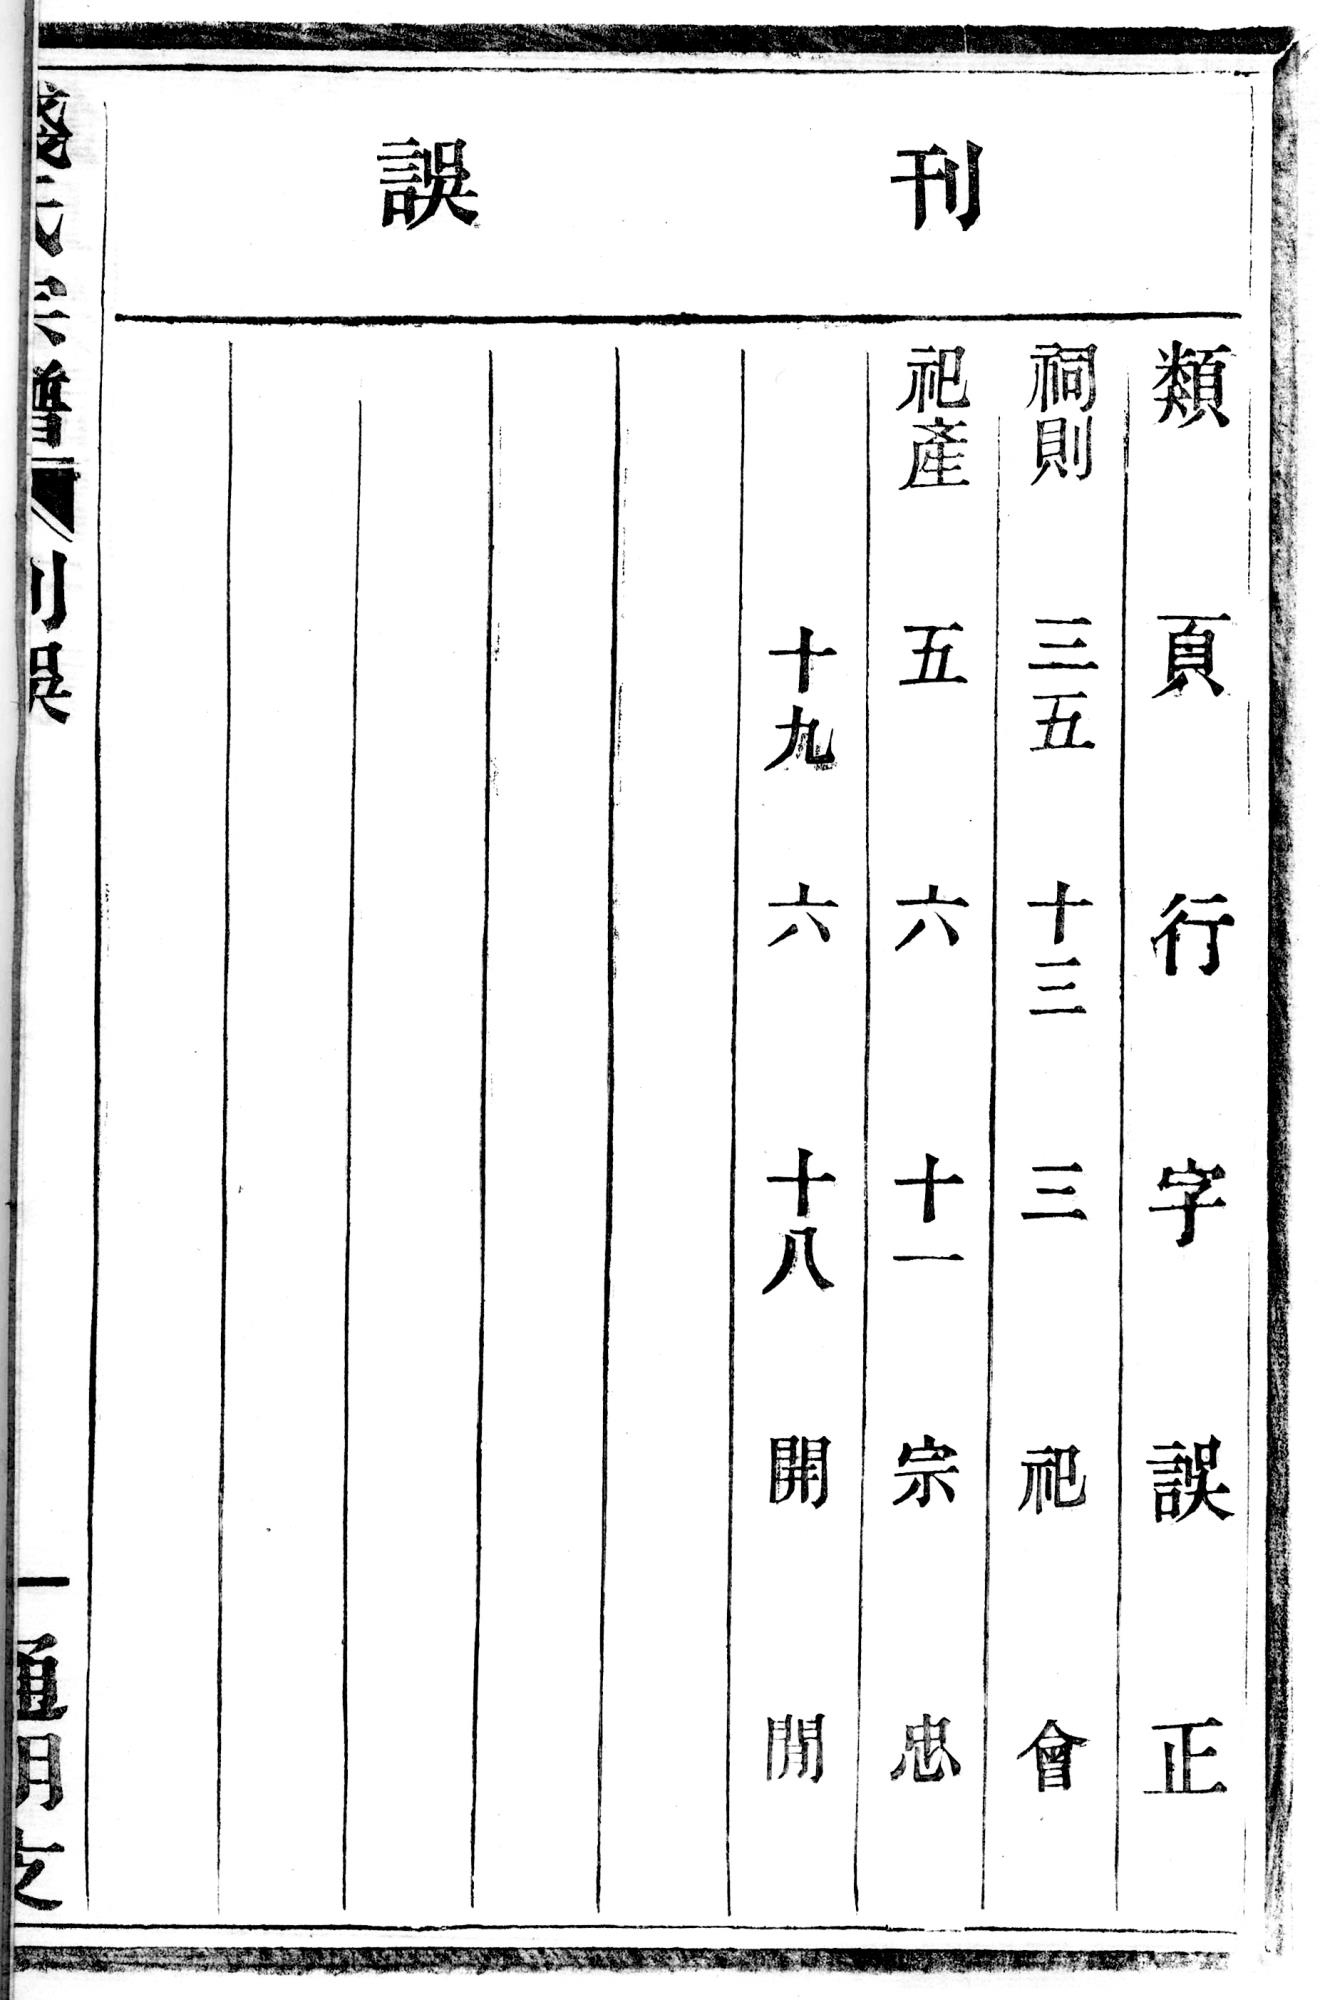 刊誤
類 頁 行 字 誤 正
祠則 三五 十三 三 祀 會
祀產 五 六 十一 宗 忠
十九 六 十八 開 閒
氏宗譜 刊誤 一 通明